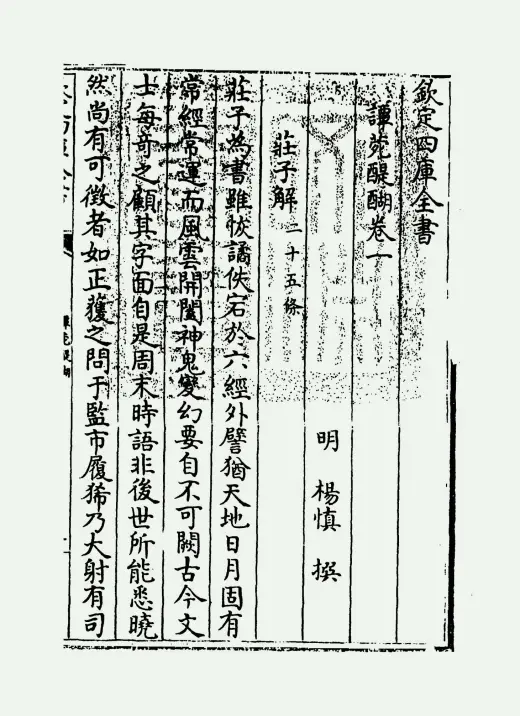 欽定四庫全書
譚菀醍醐卷一
明 楊慎 撰
莊子解二十五條
莊子為書雖恢譎佚宕於六經外譬猶天地日月固有
常經常運而風雲開闔神鬼變幻要自不可闕古今文
士每奇之顧其字面自是周末時語非後世所能悉曉
然尚有可徴者如正䕶之問于監市履狶乃大射有司